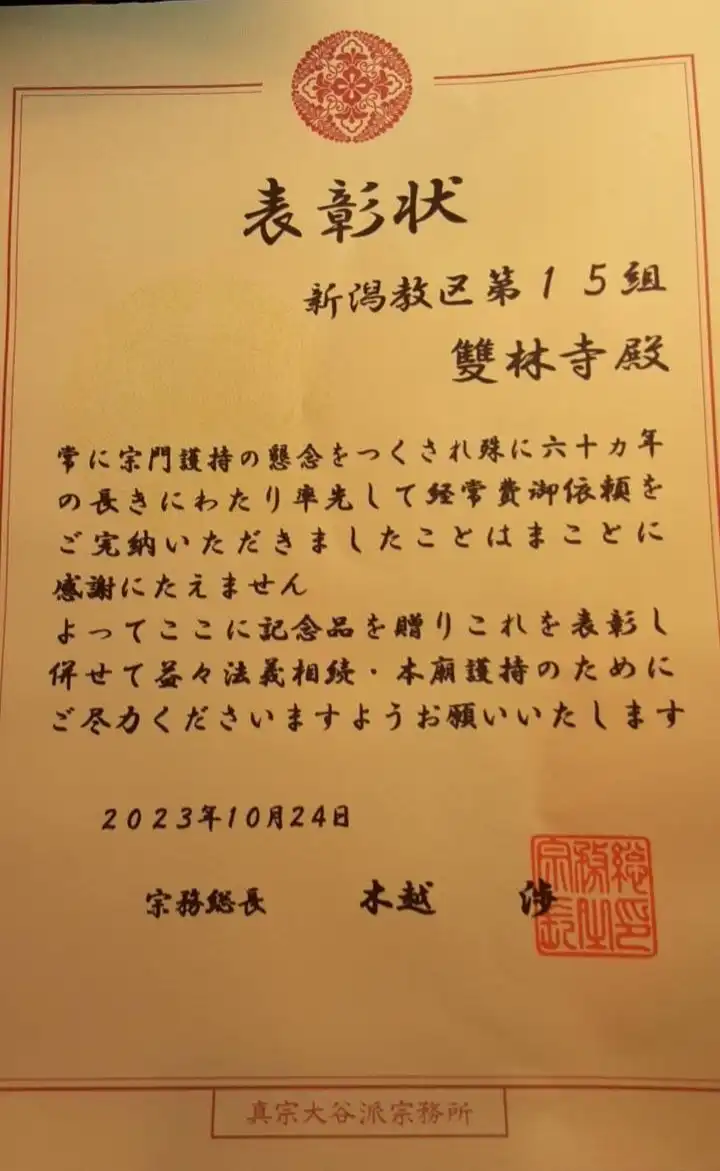 表彰状
新潟教区第15組
雙林寺殿
常に宗門護持の懇念をつくされ殊に六十カ年
の長きにわたり率先して経常費御依頼を
ご完納いただきましたことはまことに
感謝にたえません
よってここに記念品を贈りこれを表彰し
併せて益々法義相続・本廟護持のために
ご尽力くださいますようお願いいたします
2023年10月24日
宗務総長 木越 渉
真宗大谷派宗務所